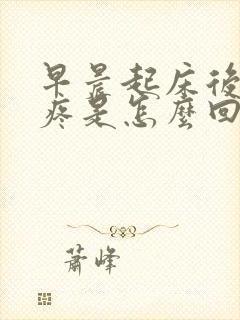 早晨起床後
疼是怎麼回
蕭峰